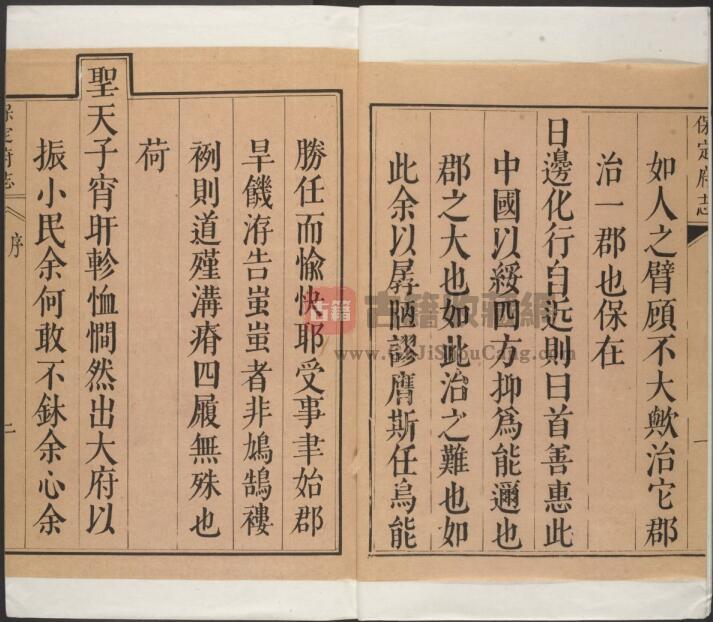 保定府志
一
如人之臂顧不大歟治它郡
治一郡也保在
日邊化行自近則曰首善惠此
中國以綏四方抑爲能邇也
郡之大也如此治之難也如
此余以孱陋謬膺斯任烏能
勝任而愉快耶受事聿始郡
旱饑洊告蚩蚩者非鳩鵠褸
裂則道殣溝瘠四履無殊也
荷
聖天子宵旰軫恤憪然出大府以
振小民余何敢不鉥余心余
保定府志
序
二
古籍
古籍收藏網
www.GuJiShouCang.com